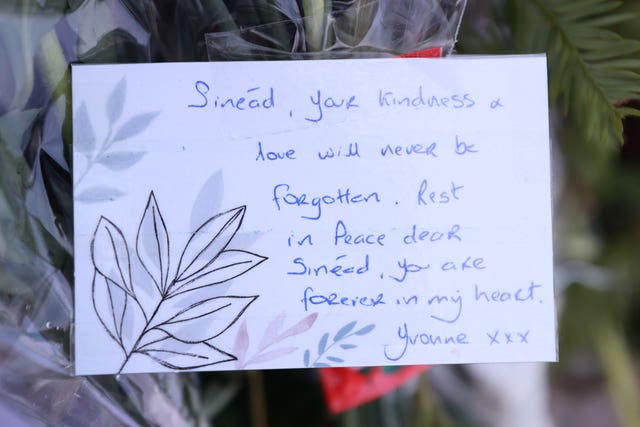 Sinéad, your kindness &
love will never be
forgotten. Rest
in Peace dear
Sinéad, you are
forever in my heart.
Yvonne xxx